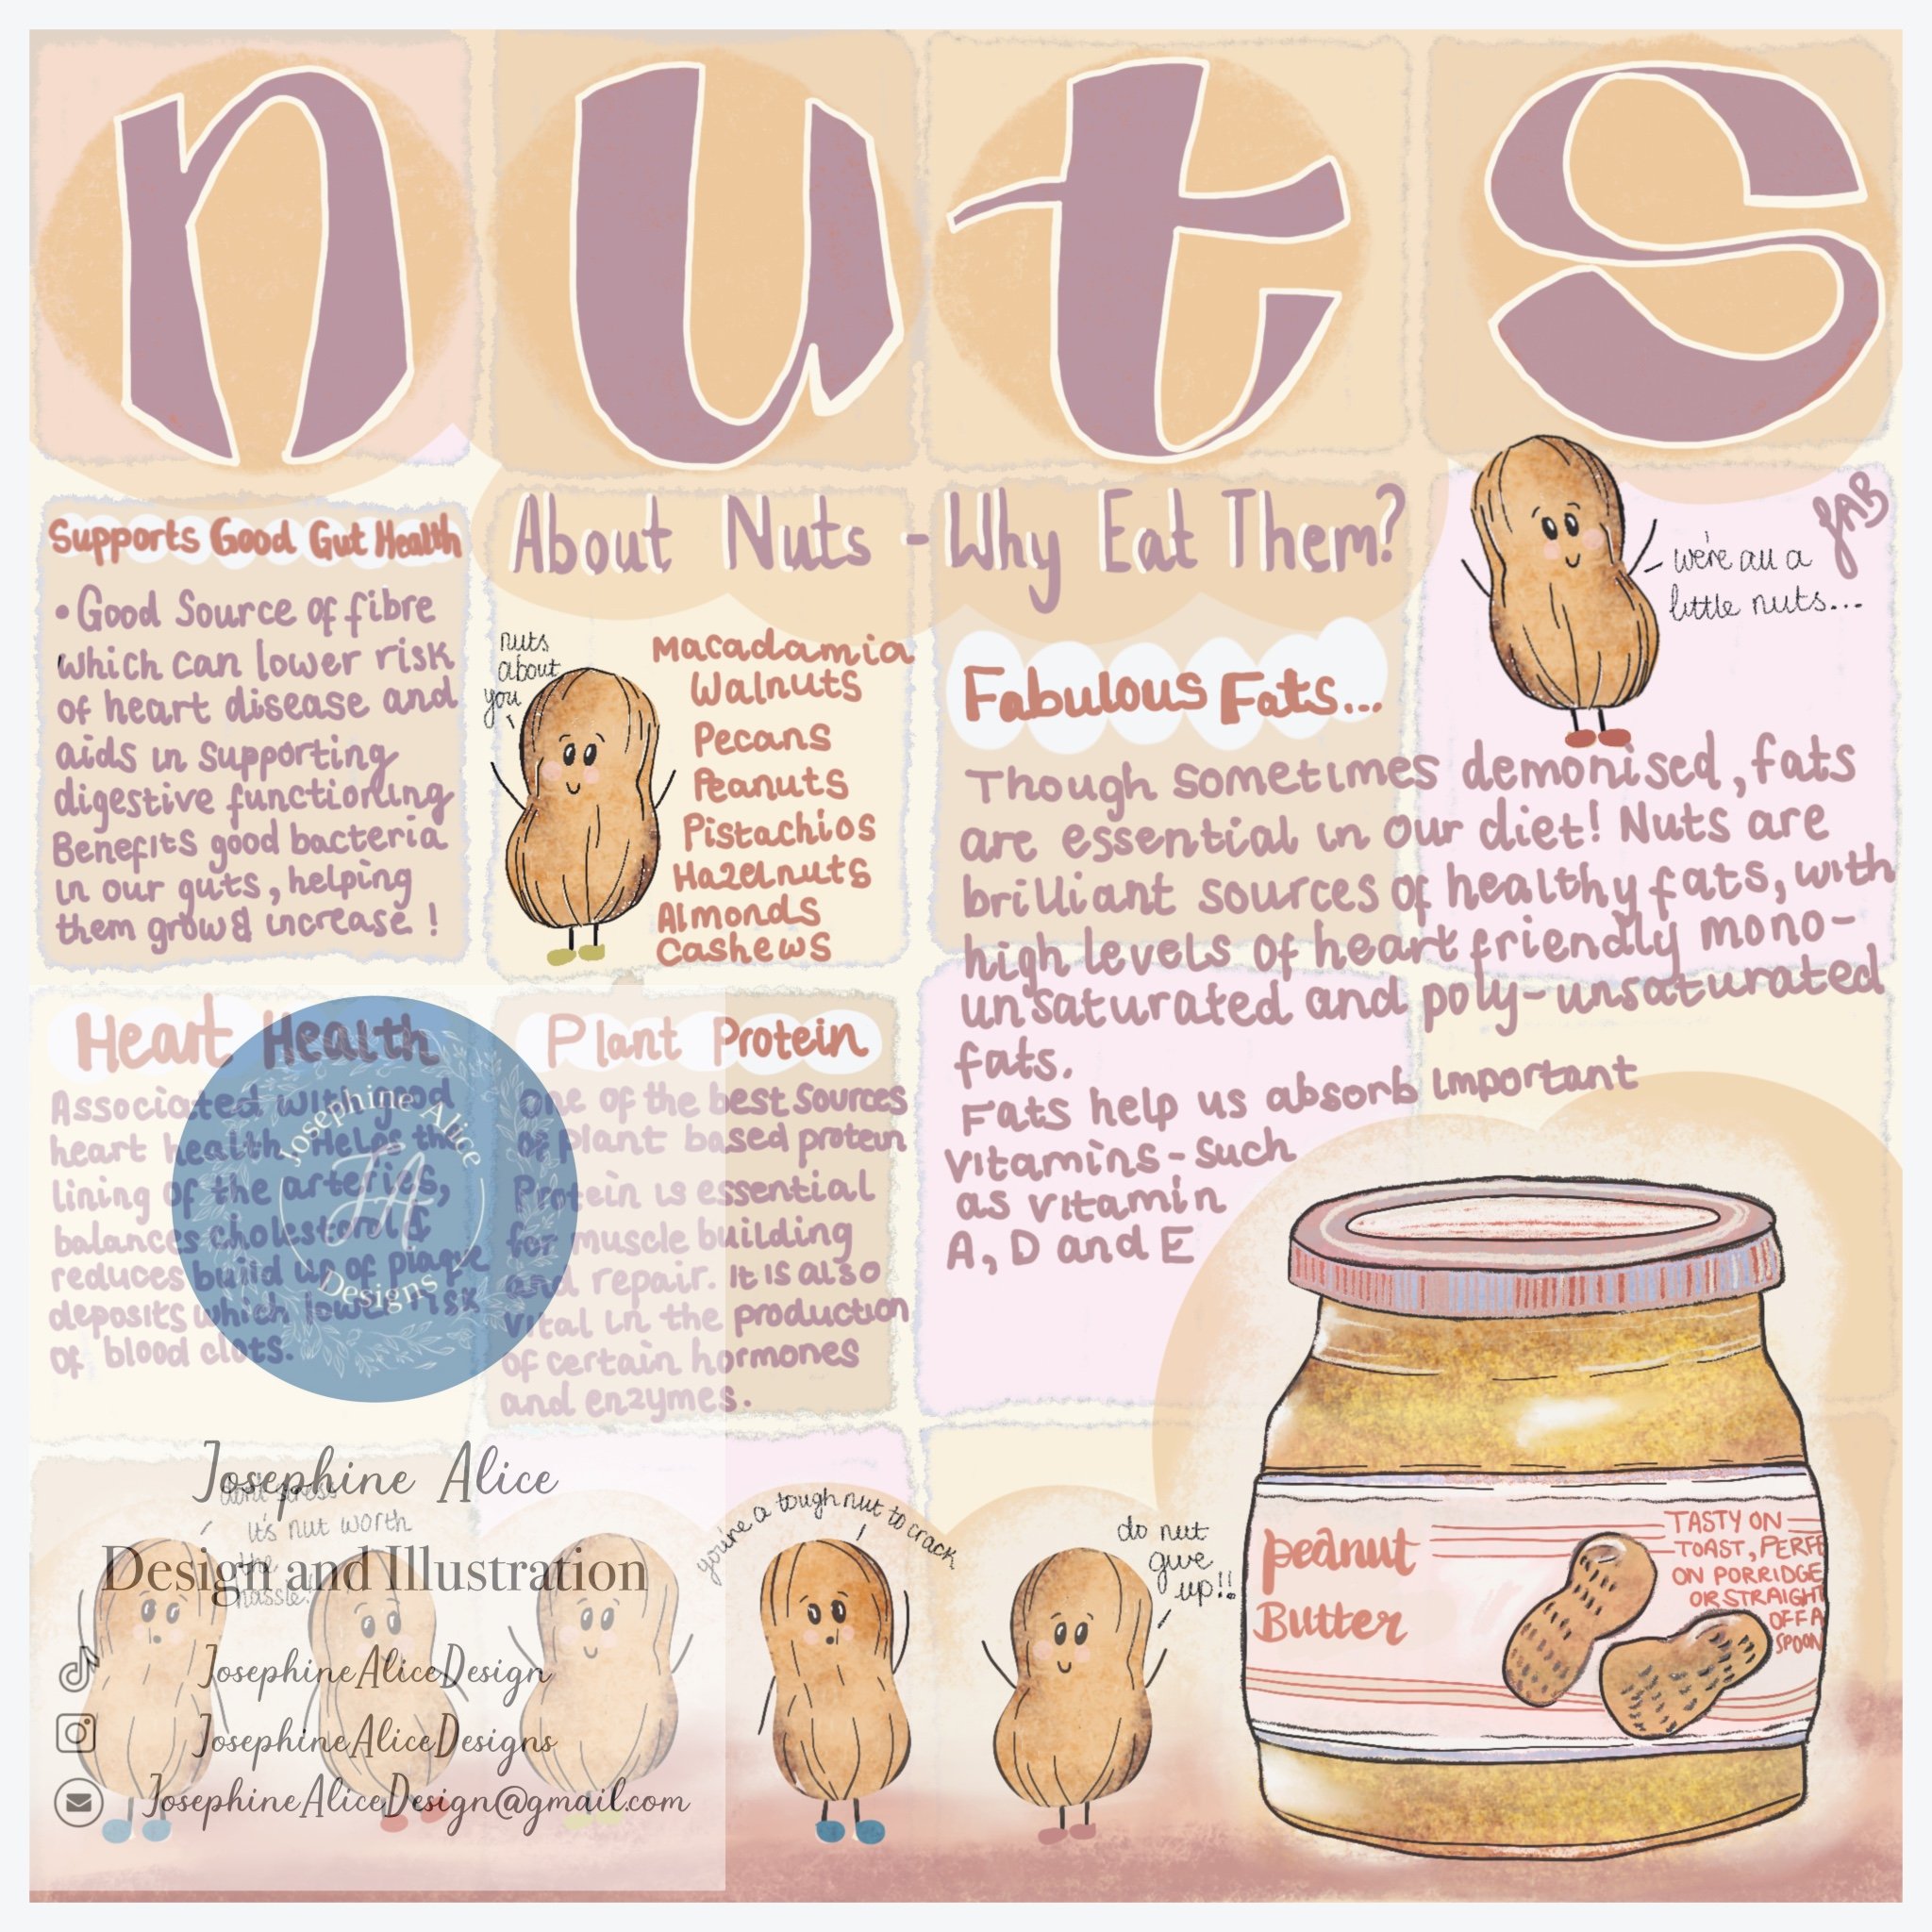 nuts
Supports Good Gut Health
• Good Source of fibre
which can lower risk
of heart disease and
aids in supporting
digestive functioning
Benefits good bacteria
in our guts, helping
them grow & increase !
About Nuts - Why Eat Them?
nuts
about
you
Macadamia
Walnuts
Pecans
Peanuts
Pistachios
Hazelnuts
Almonds
Cashews
FAB
we're all a
little nuts...
Fabulous Fats...
Though sometimes demonised, fats
are essential in our diet! Nuts are
brilliant sources of healthy fats, with
high levels of heart friendly mono-
unsaturated and poly-unsaturated
fats.
Fats help us absorb important
vitamins - such
as vitamin
A, D and E
Heart Health
Associated with good
heart health. Helps the
lining of the arteries,
balances cholesterol &
reduces build up of plaque
deposits which lower risk
of blood clots.
Josephine Alice
JA
Designs
Plant Protein
One of the best sources
of plant based protein
Protein is essential
for muscle building
and repair. It is also
vital in the production
of certain hormones
and enzymes.
Josephine Alice
Design and Illustration
JosephineAliceDesign
JosephineAliceDesigns
JosephineAliceDesign@gmail.com
don't stress
it's nut worth
the
hassle!
you're a tough nut to crack
do nut
give
up!!
peanut
Butter
TASTY ON
TOAST, PERFE
ON PORRIDGE
OR STRAIGHT
OFF A
SPOON